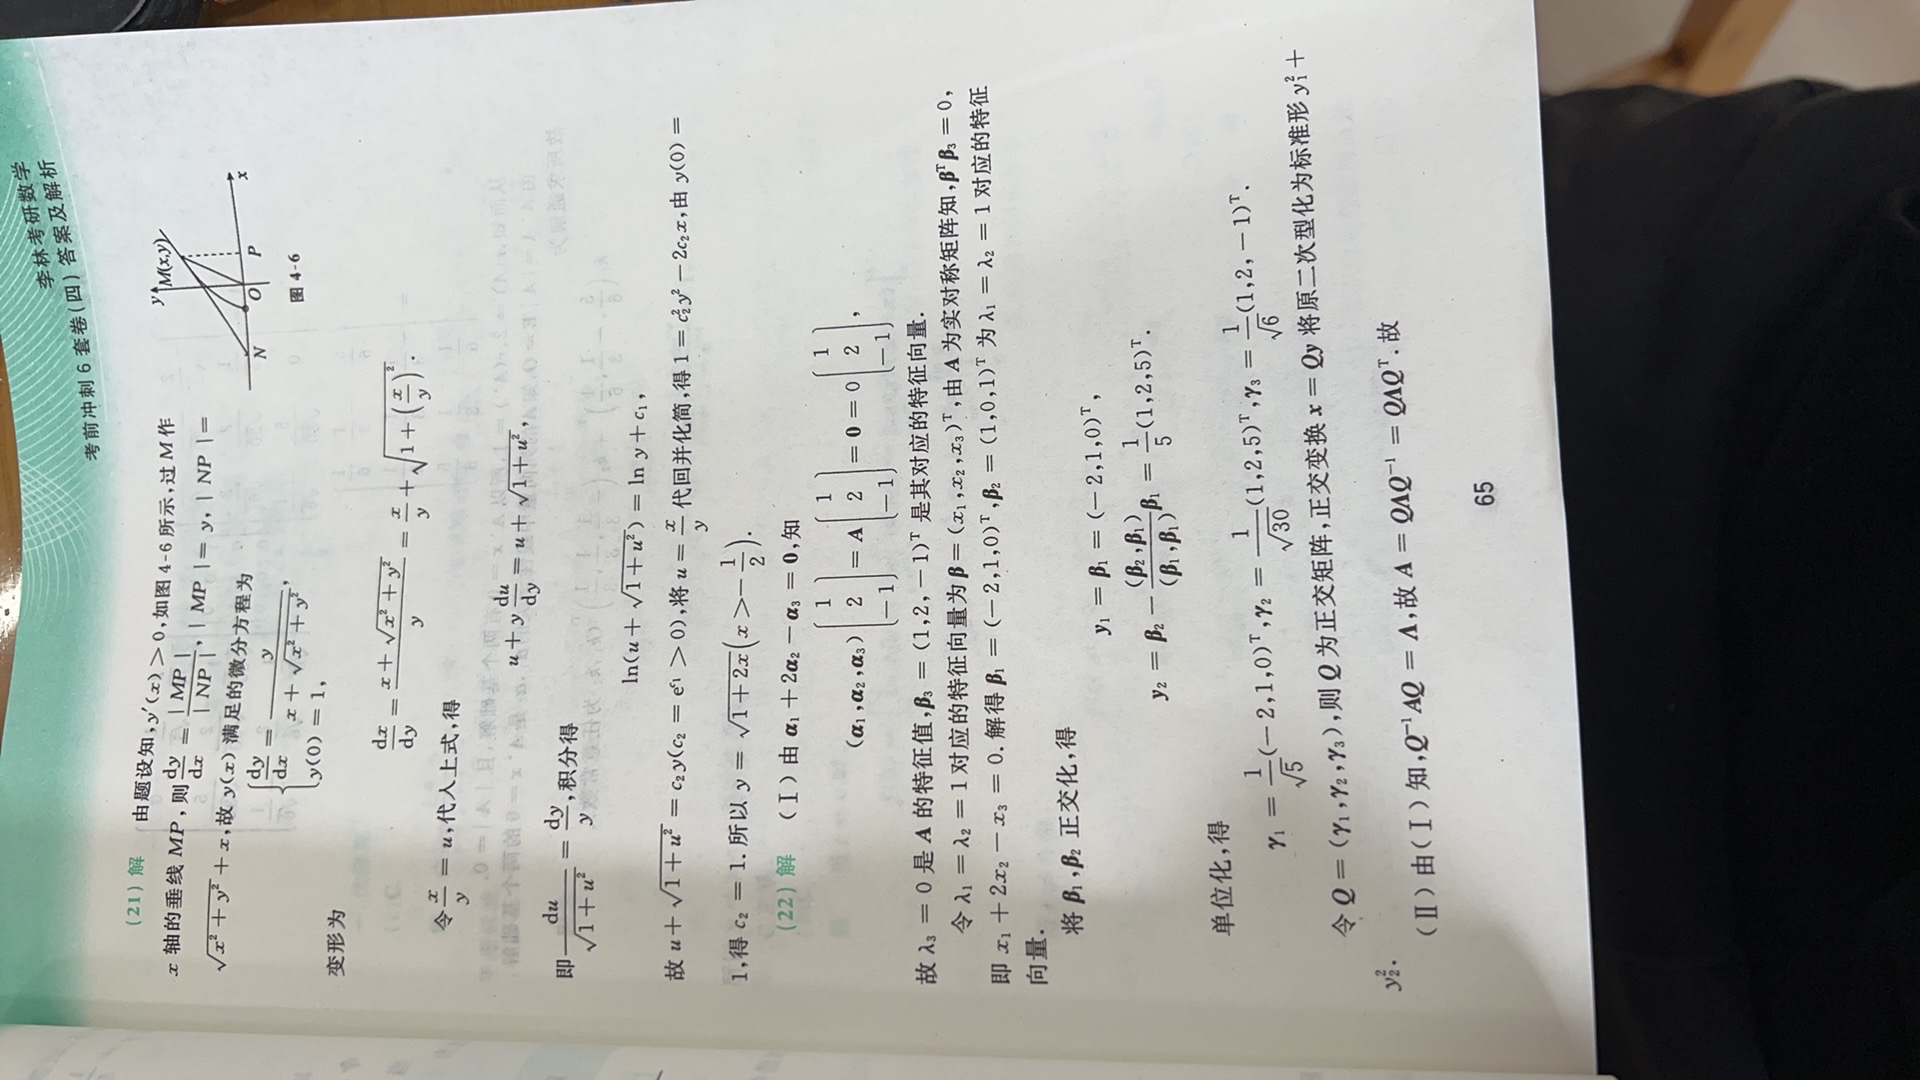 李林考研数学
考前冲刺6套卷(四)答案及解析
(21)解 由题设知,y′(x)>0,如图4-6所示,过M作
x轴的垂线MP,则 dy/dx = |MP|/|NP|, |MP|=y, |NP|=
√(x²+y²)+x,故y(x)满足的微分方程为
{ dy/dx = y/(x+√(x²+y²)),
y(0)=1,
y
M(x,y)
N
O
P
x
图4-6
变形为
dx/dy = (x+√(x²+y²))/y = x/y + √(1+(x/y)²).
令 x/y = u,代入上式,得
u + y du/dy = u + √(1+u²),
即 du/√(1+u²) = dy/y,积分得
ln(u+√(1+u²)) = ln y + c₁,
故 u+√(1+u²) = c₂y(c₂=e^{c₁}>0),将 u = x/y 代回并化简,得 1 = c₂²y² − 2c₂x,由 y(0) =
1,得 c₂ = 1. 所以 y = √(1+2x) (x > −1/2).
(22)解 (Ⅰ)由 α₁+2α₂−α₃ = 0,知
(α₁,α₂,α₃)(1, 2, −1)ᵀ = A(1, 2, −1)ᵀ = 0 = 0(1, 2, −1)ᵀ,
故 λ₃ = 0 是 A 的特征值,β₃ = (1,2,−1)ᵀ 是其对应的特征向量.
令 λ₁ = λ₂ = 1 对应的特征向量为 β = (x₁,x₂,x₃)ᵀ,由 A 为实对称矩阵知,βᵀβ₃ = 0,
即 x₁+2x₂−x₃ = 0. 解得 β₁ = (−2,1,0)ᵀ,β₂ = (1,0,1)ᵀ 为 λ₁ = λ₂ = 1 对应的特征
向量.
将 β₁,β₂ 正交化,得
y₁ = β₁ = (−2,1,0)ᵀ,
y₂ = β₂ − (β₂,β₁)/(β₁,β₁) β₁ = 1/5(1,2,5)ᵀ.
单位化,得
γ₁ = 1/√5(−2,1,0)ᵀ,γ₂ = 1/√30(1,2,5)ᵀ,γ₃ = 1/√6(1,2,−1)ᵀ.
令 Q = (γ₁,γ₂,γ₃),则 Q 为正交矩阵,正交变换 x = Qy 将原二次型化为标准形 y₁²+
y₂².
(Ⅱ)由(Ⅰ)知,Q⁻¹AQ = Λ,故 A = QΛQ⁻¹ = QΛQᵀ. 故
65